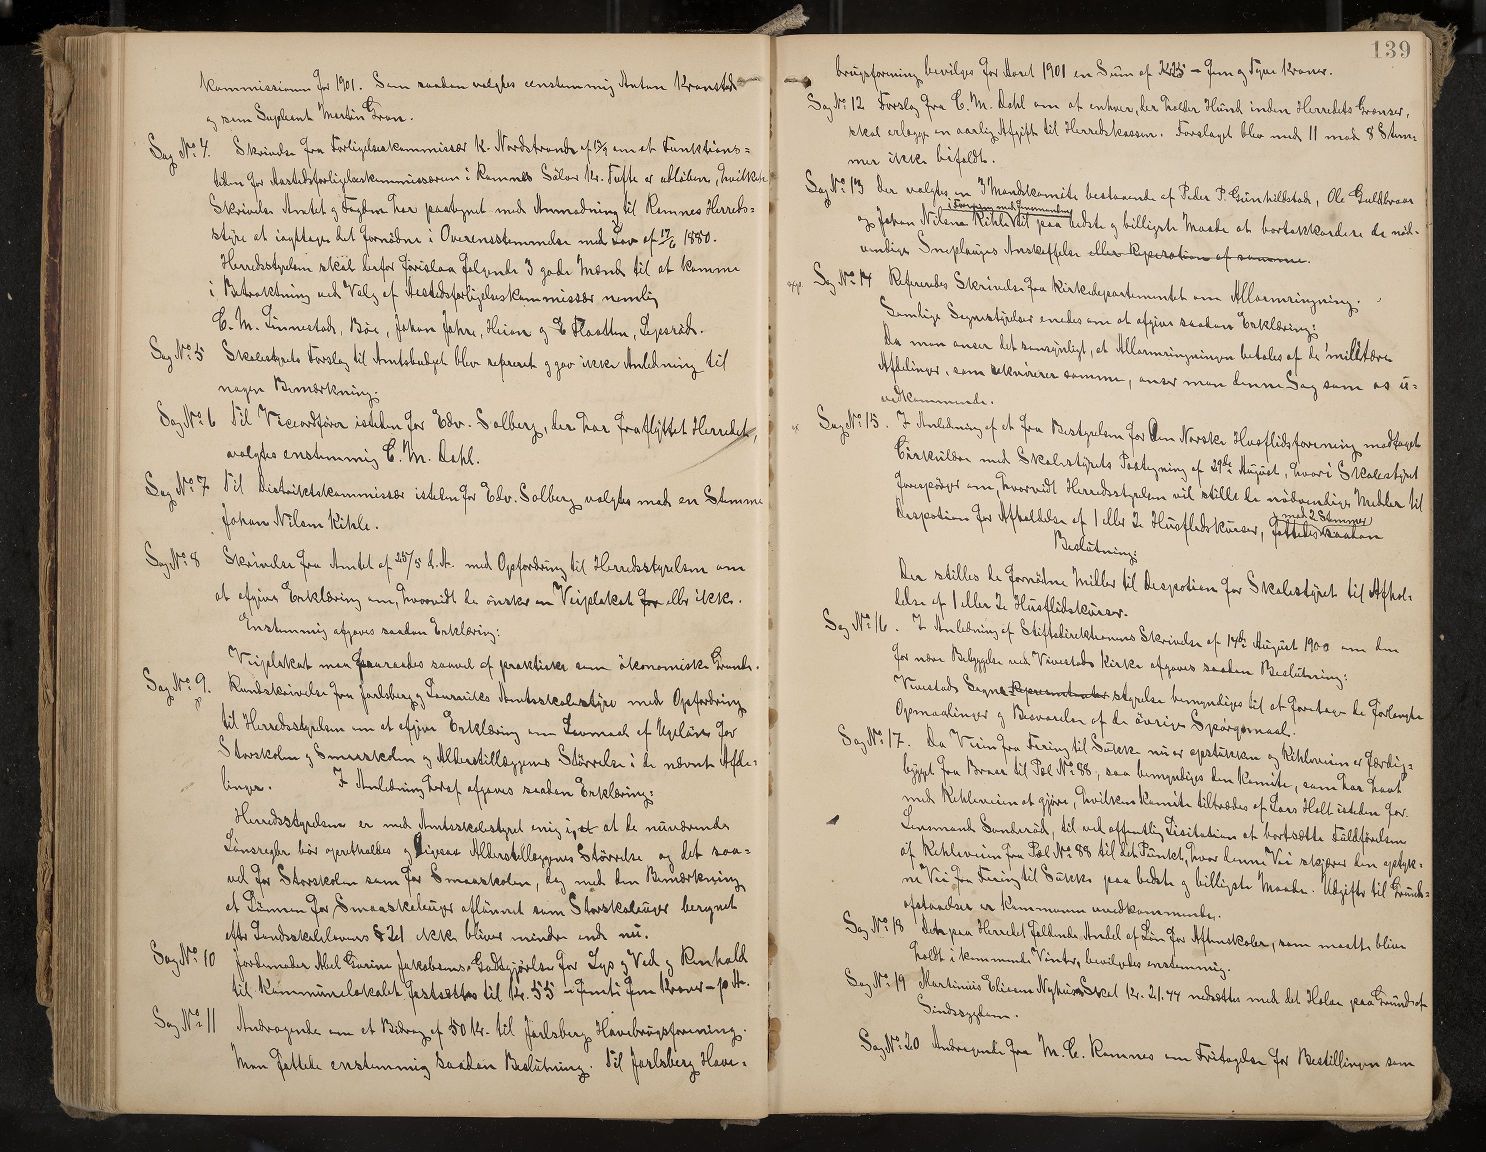 Kommissionen for 1901. Som saadan valgtes eenstemmig Anton Kronstad
og som Supleant Martin Gran.
Sag No. 4. Skrivelse fra Forligelseskommissær K. Nordstrand af om at Funktions-
tiden for Aastedsforligelseskommissæren i Ramnes Sølve Kr. Tufte er udløben, hvilken
Skrivelse Amtet og Fogden har paategnet med Anmodning til Ramnes Herreds-
styre at iagttage det fornødne i Overensstemmelse med Lov af 17/6 1880.
Herredsstyrelsen skal derfor foreslaa følgende 3 gode Mænd til at komme
i Betragtning ved Valg af Aastedsforligelseskommissær nemlig
C. M. Linnestad, Bøe, Johan Jahre, Heian og Flaatten,
Sag No. 5 Skolestyrets Forslag til Amtsbudget blev refereret og gav ikke Anledning til
nogen Bemærkning.
Sag No. 6 Til Viceordfører istedenfor Edv. Solberg, der har fraflyttet Herredet,
valgtes enstemmig C. M. Dahl.
Sag No. 7 Til Distriktskommissær istedenfor Edv. Solberg valgtes med en Stemme
Johan Nilsen Kihle.
Sag No. 8 Skrivelse fra Amtet af 25/5 d. A. med Opfordring til Herredsstyrelsen om
at afgive Erklæring om, hvorvidt de ønsker en Veiplakat for eller ikke.
Enstemmig afgaves saadan Erklæring:
Veiplakat maa fraraades saavel af praktiske som økonomiske Grunde.
Sag No. 9. Rundskrivelse fra Jarlsberg og Laurviks Amtsskolestyre med Opfordring
til Herredsstyrelsen om at afgive Erklæring om Lønmaal af Ugeløn for
Storskolen og Smaaskolen og Alderstillæggenes Størrelse i de nævnte Afde-
linger. I Anledning heraf afgaves saadan Erklæring:
Herredsstyrelsen er med Amtsskolestyret enig i, at de nuværende
Lønsregler bør opretholdes og ligesaa Alderstillæggenes Størrelse og det saa-
vel for Storskolen som for Smaaskolen, dog med den Bemærkning
at Lønnen for Smaaskoleuger aflønnet som Storskoleuger beregnet
efter Landsskolelovens § 21 ikke bliver mindre end nu.
Sag No. 10 Jordemoder Abel Gurine Jakobsens Godtgjørelse for Lys og Ved og Renhold
til Kommunelokalet fastsættes til Kr. 55 - femti fem Kroner - p. A.
Sag No. 11 Andragende om et Bidrag af 50 Kr. til Jarlsberg Havebrugsforening.
Man fattede enstemmig saadan Beslutning. Til Jarlsberg Have-
139
brugsforening bevilges for Aaret 1901 en Sum af Kr 25 - fem og Tyve Kroner.
Sag No. 12 Forslag fra C. M. Dahl om at enhver, der holder Hund inden Herredets Grænser,
skal erlægge en aarlig Afgift til Herredskassen. Forslaget blev med 11 mod 8 Stem-
mer ikke bifaldt.
Sag No. 13 Der valgtes en 3 Mandskomite bestaaende af Peder P. Gunhildstad, Ole Guldhaar
i Forening med Formanden
og Johan Nilsen Kihle til paa bedste og billigste Maade at bortakkordere de nød-
vendige Sneplouges Anskaffelse eller Reperation af samme.
exp. Sag No. 14 Refereredes Skrivelse fra Kirkedepartementet om Allarmringning.
Samtlige Sognestyrelser enedes om at afgive saadan Erklæring:
Da man anser det sansynligt, at Allarmringningen betales af de militære
Afdelinger, som rekvirerer samme, anser man denne Sag som os u-
vedkommende.
Sag No. 15. I Anledning af et fra Bestyrelsen for Den Norske Husflidsforening modtaget
Cirkulære med Skolestyrets Paategning af 29de August, hvori Skolestyret
forespørger om, hvorvidt Herredsstyrelsen vil stille de nødvendige Midler til
med 2 Stemmer
Desposition for Afholdelse af 1 eller 2 Husflidskurser, fattedes saadan
Beslutning:
Der stilles de fornødne Midler til Desposition for Skolestyret til Afhol-
delse af 1 eller 2 Husflidskurser.
Sag No. 16. I Anledning af Stiftsdirektionens Skrivelse af 14de August 1900 om den
for nære Bebyggelse ved Vivestad Kirke afgaves saadan Beslutning:
Vivestad Sogne Repræsentanter styrelse bemyndiges til at foretage de forlangte
Opmaalinger og Besvarelse af de øvrige Spørgsmaal.
Sag No. 17. Da Veien fra Fering til Sukke nu er opstukken og Kihleveien er færdig-
bygget fra Braar til Pæl No. 88, saa bemyndiges den Komite, som har havt
med Kihleveien at gjøre, hvilken Komite tiltrædes af Lars Holt istedenfor
Lensmand Sanderød, til ved offentlig Lisitation at bortsætte Fuldførelsen
af Kihleveien fra Pæl No. 88 til det Punkt, hvor denne Vei skjærer den opstuk-
ne Vei fra Fering til Sukke paa bedste og billigste Maade. Udgifter til Grund-
afstaaelser er Kommunen uvedkommende.
Sag No. 18 Den paa Herredet faldende Andel af Løn for Aftenskoler, som maatte blive
holdt i kommende Vinter, bevilgedes enstemmig.
Sag No. 19 Martinius Eliesen Skat Kr. 21.44 nedsættes med det Halve paa Grund af
Sindssygdom.
Sag No. 20 Andragende fra M. C. Ramnes om Fritagelse for Bestillingen som